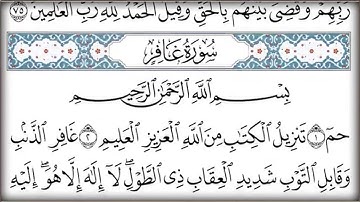 رَبِّهِمْ وَقُضِيَ بَيْنَهُم بِالْحَقِّ وَقِيلَ الْحَمْدُ لِلَّهِ رَبِّ الْعَالَمِينَ ٧٥
سُورَةُ غَافِرٍ
بِسْمِ اللَّهِ الرَّحْمَٰنِ الرَّحِيمِ
حمٓ ١ تَنزِيلُ الْكِتَابِ مِنَ اللَّهِ الْعَزِيزِ الْعَلِيمِ ٢ غَافِرِ الذَّنۢبِ
وَقَابِلِ التَّوْبِ شَدِيدِ الْعِقَابِ ذِي الطَّوْلِ ۖ لَا إِلَٰهَ إِلَّا هُوَ ۖ إِلَيْهِ